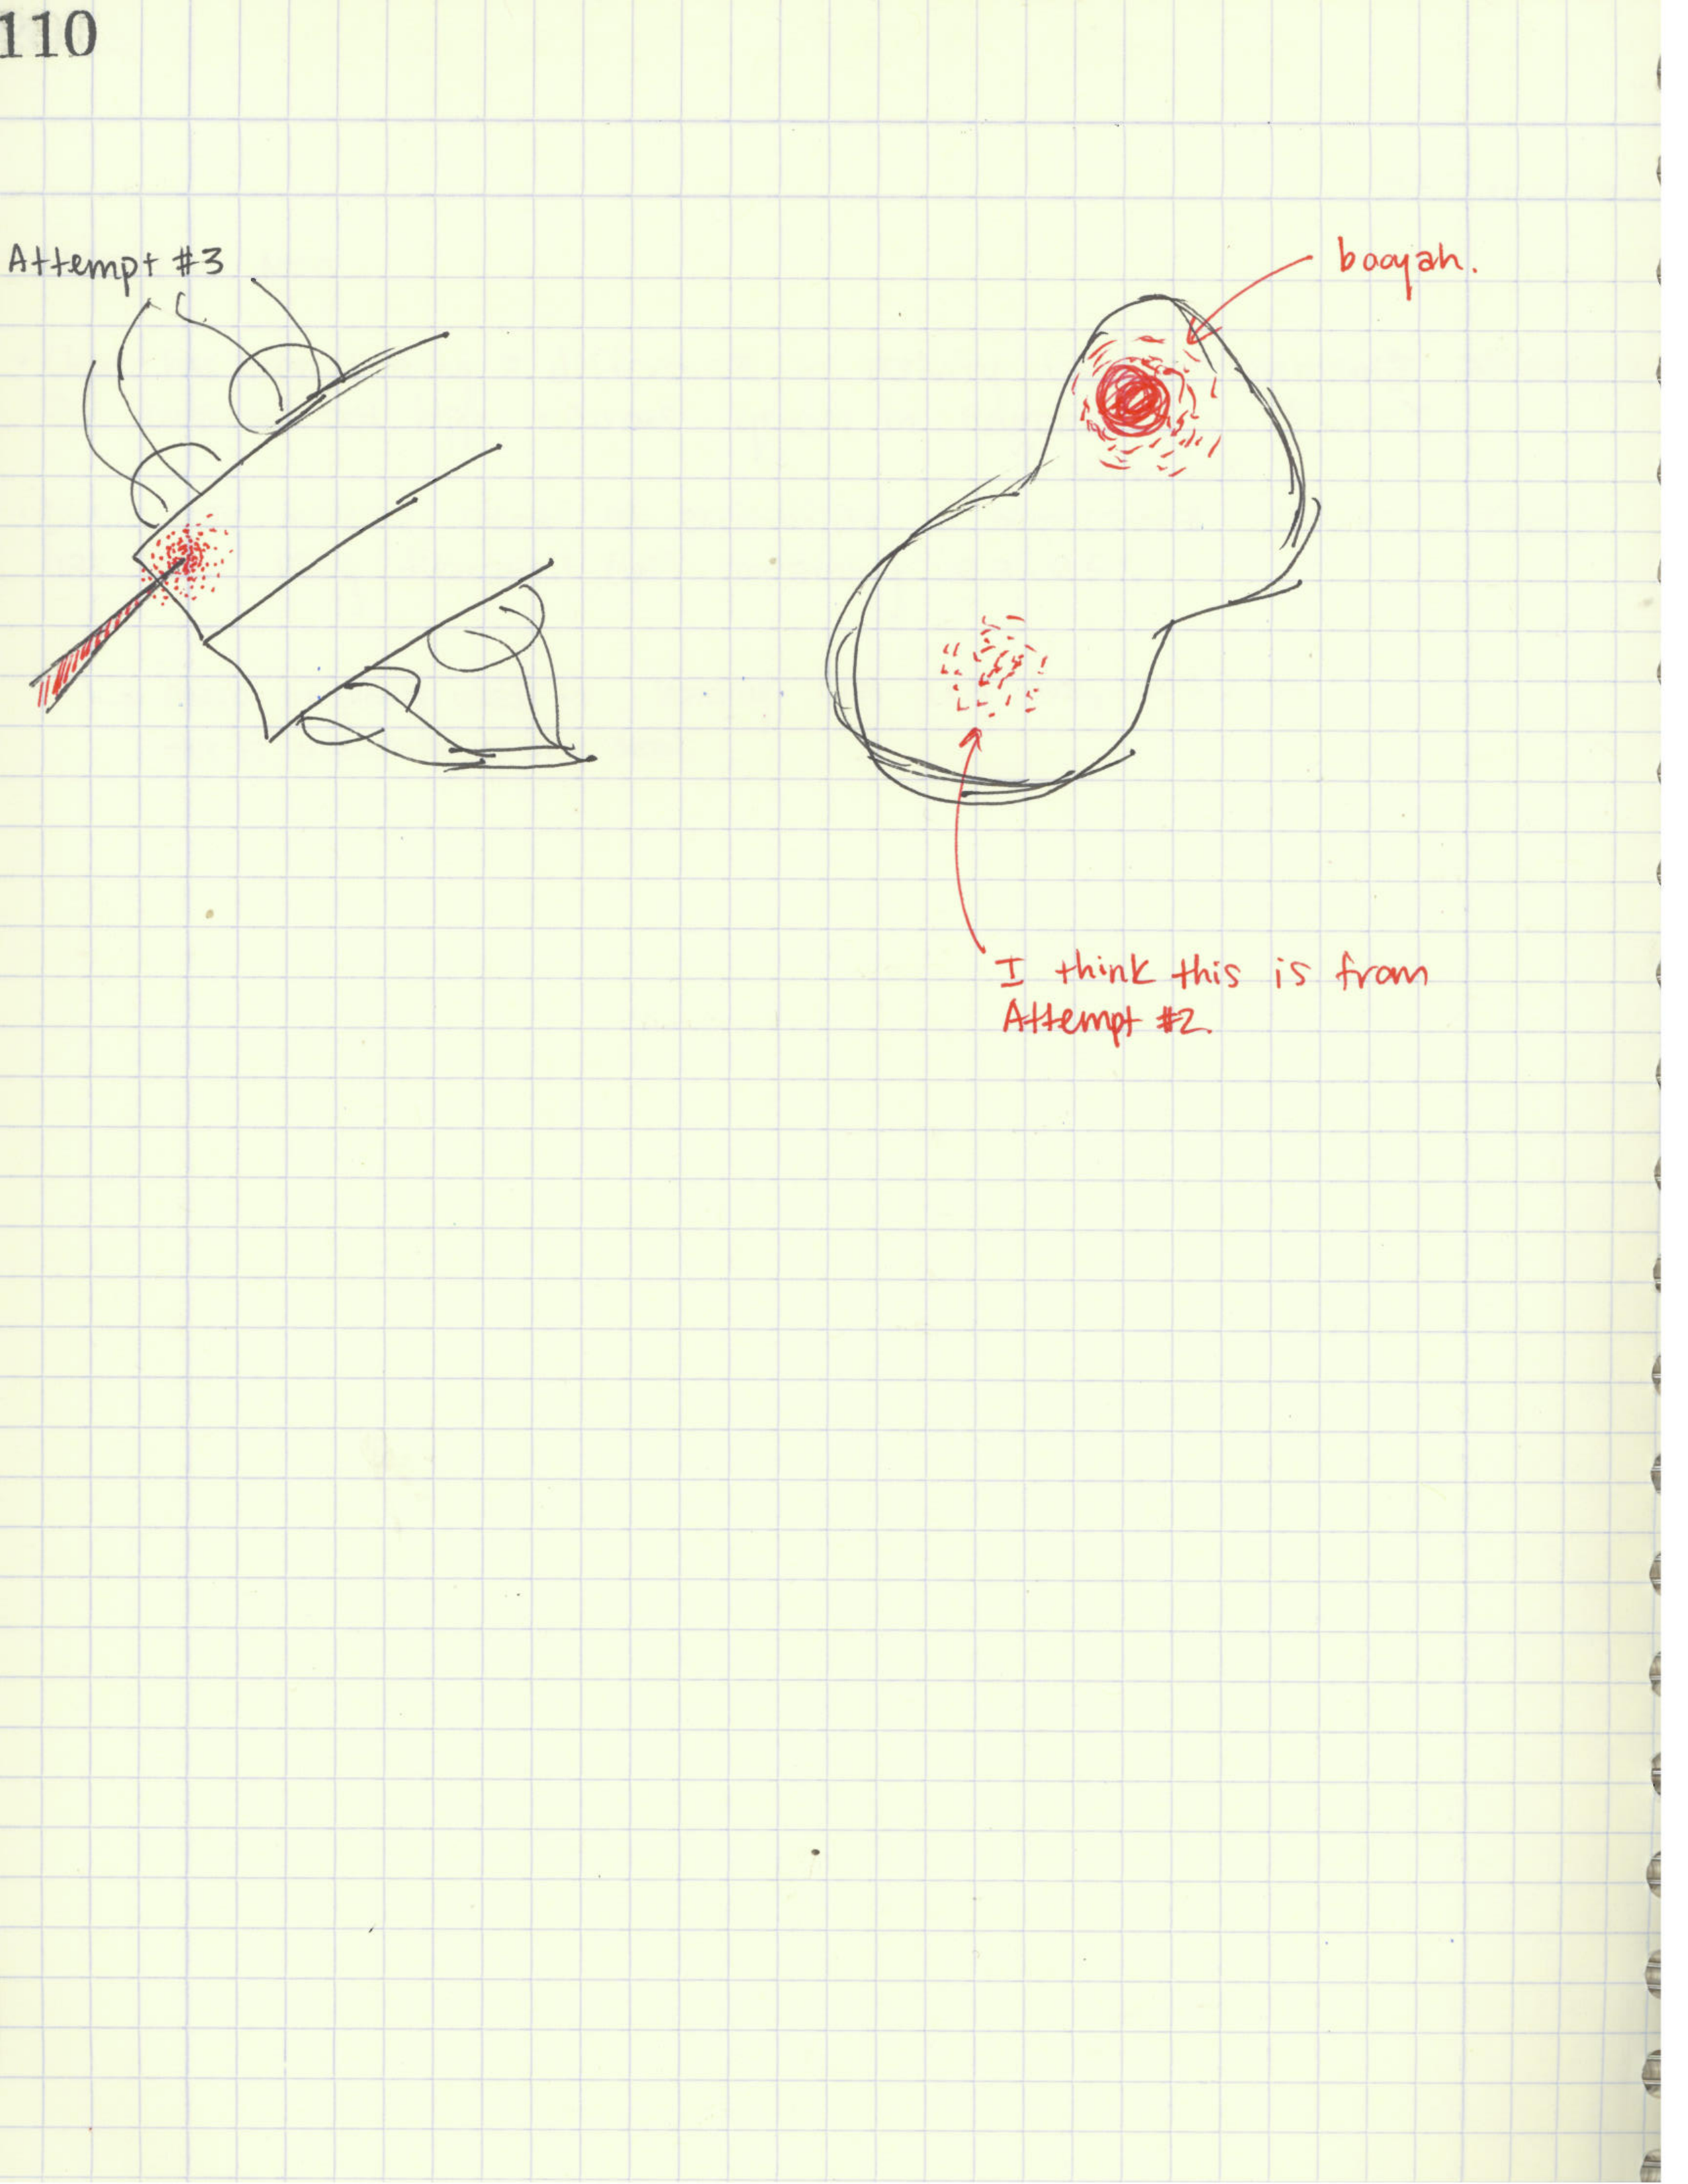 110
Attempt #3
booyah.
I think this is from
Attempt #2.